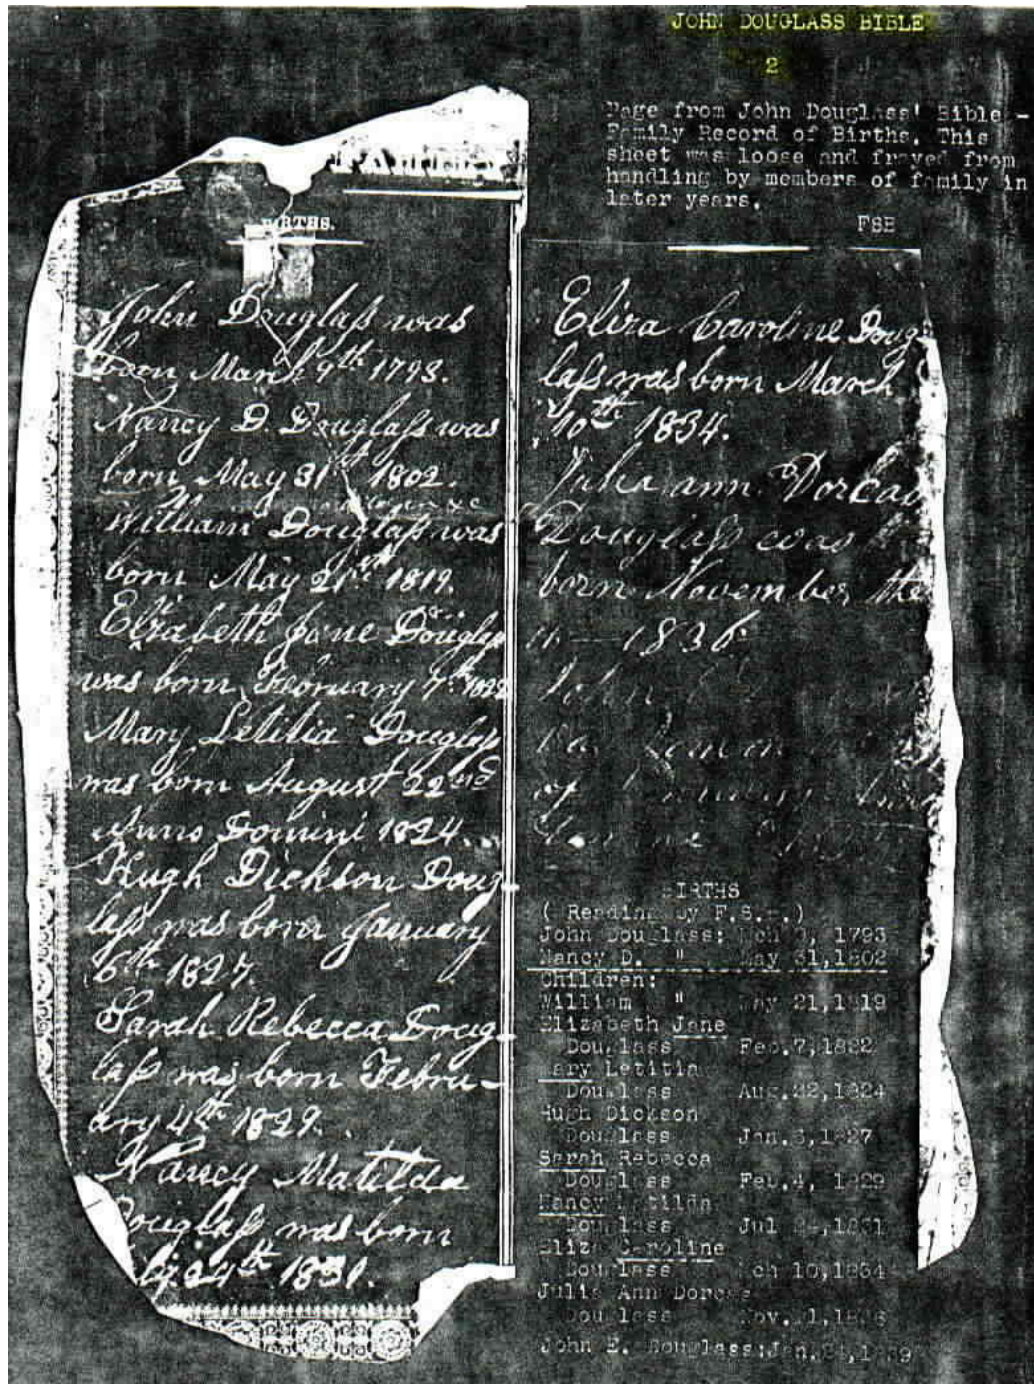 JOHN DOUGLASS BIBLE
2
Page from John Douglass' Bible -
Family Record of Births. This
sheet was loose and frayed from
handling by members of family in
later years.
FSE
BIRTHS.
John Douglaſs was
born March 9th 1793.
Nancy D. Douglaſs was
born May 31st 1802.
William Douglaſs was
born May 21st 1819.
Elizabeth Jane Douglaſs
was born February 7th 1822
Mary Letitia Douglaſs
was born August 22nd
Anno Domini 1824
Hugh Dickson Doug-
laſs was born January
6th 1827.
Sarah Rebecca Doug-
laſs was born Febru-
ary 4th 1829.
Nancy Matilda
Douglaſs was born
24th 1831.
Eliza Caroline Doug-
laſs was born March
10th 1834.
Julia ann Dorcas
Douglaſs was
born November the
1836
John
of
BIRTHS
( Reading by F.S.E.)
John Douglass: Mch 9, 1793
Nancy D. " May 31,1802
Children:
William " May 21,1819
Elizabeth Jane
Douglass Feb.7,1822
Mary Letitia
Douglass Aug.22,1824
Hugh Dickson
Douglass Jan. 1827
Sarah Rebecca
Douglass Feb.4, 1829
Nancy Matilda
Douglass Jul 24,1831
Eliza Caroline
Douglass Mch 10,1834
Julia Ann Dorcas
Douglass Nov. 1836
John E. Douglass:Jan. 1839